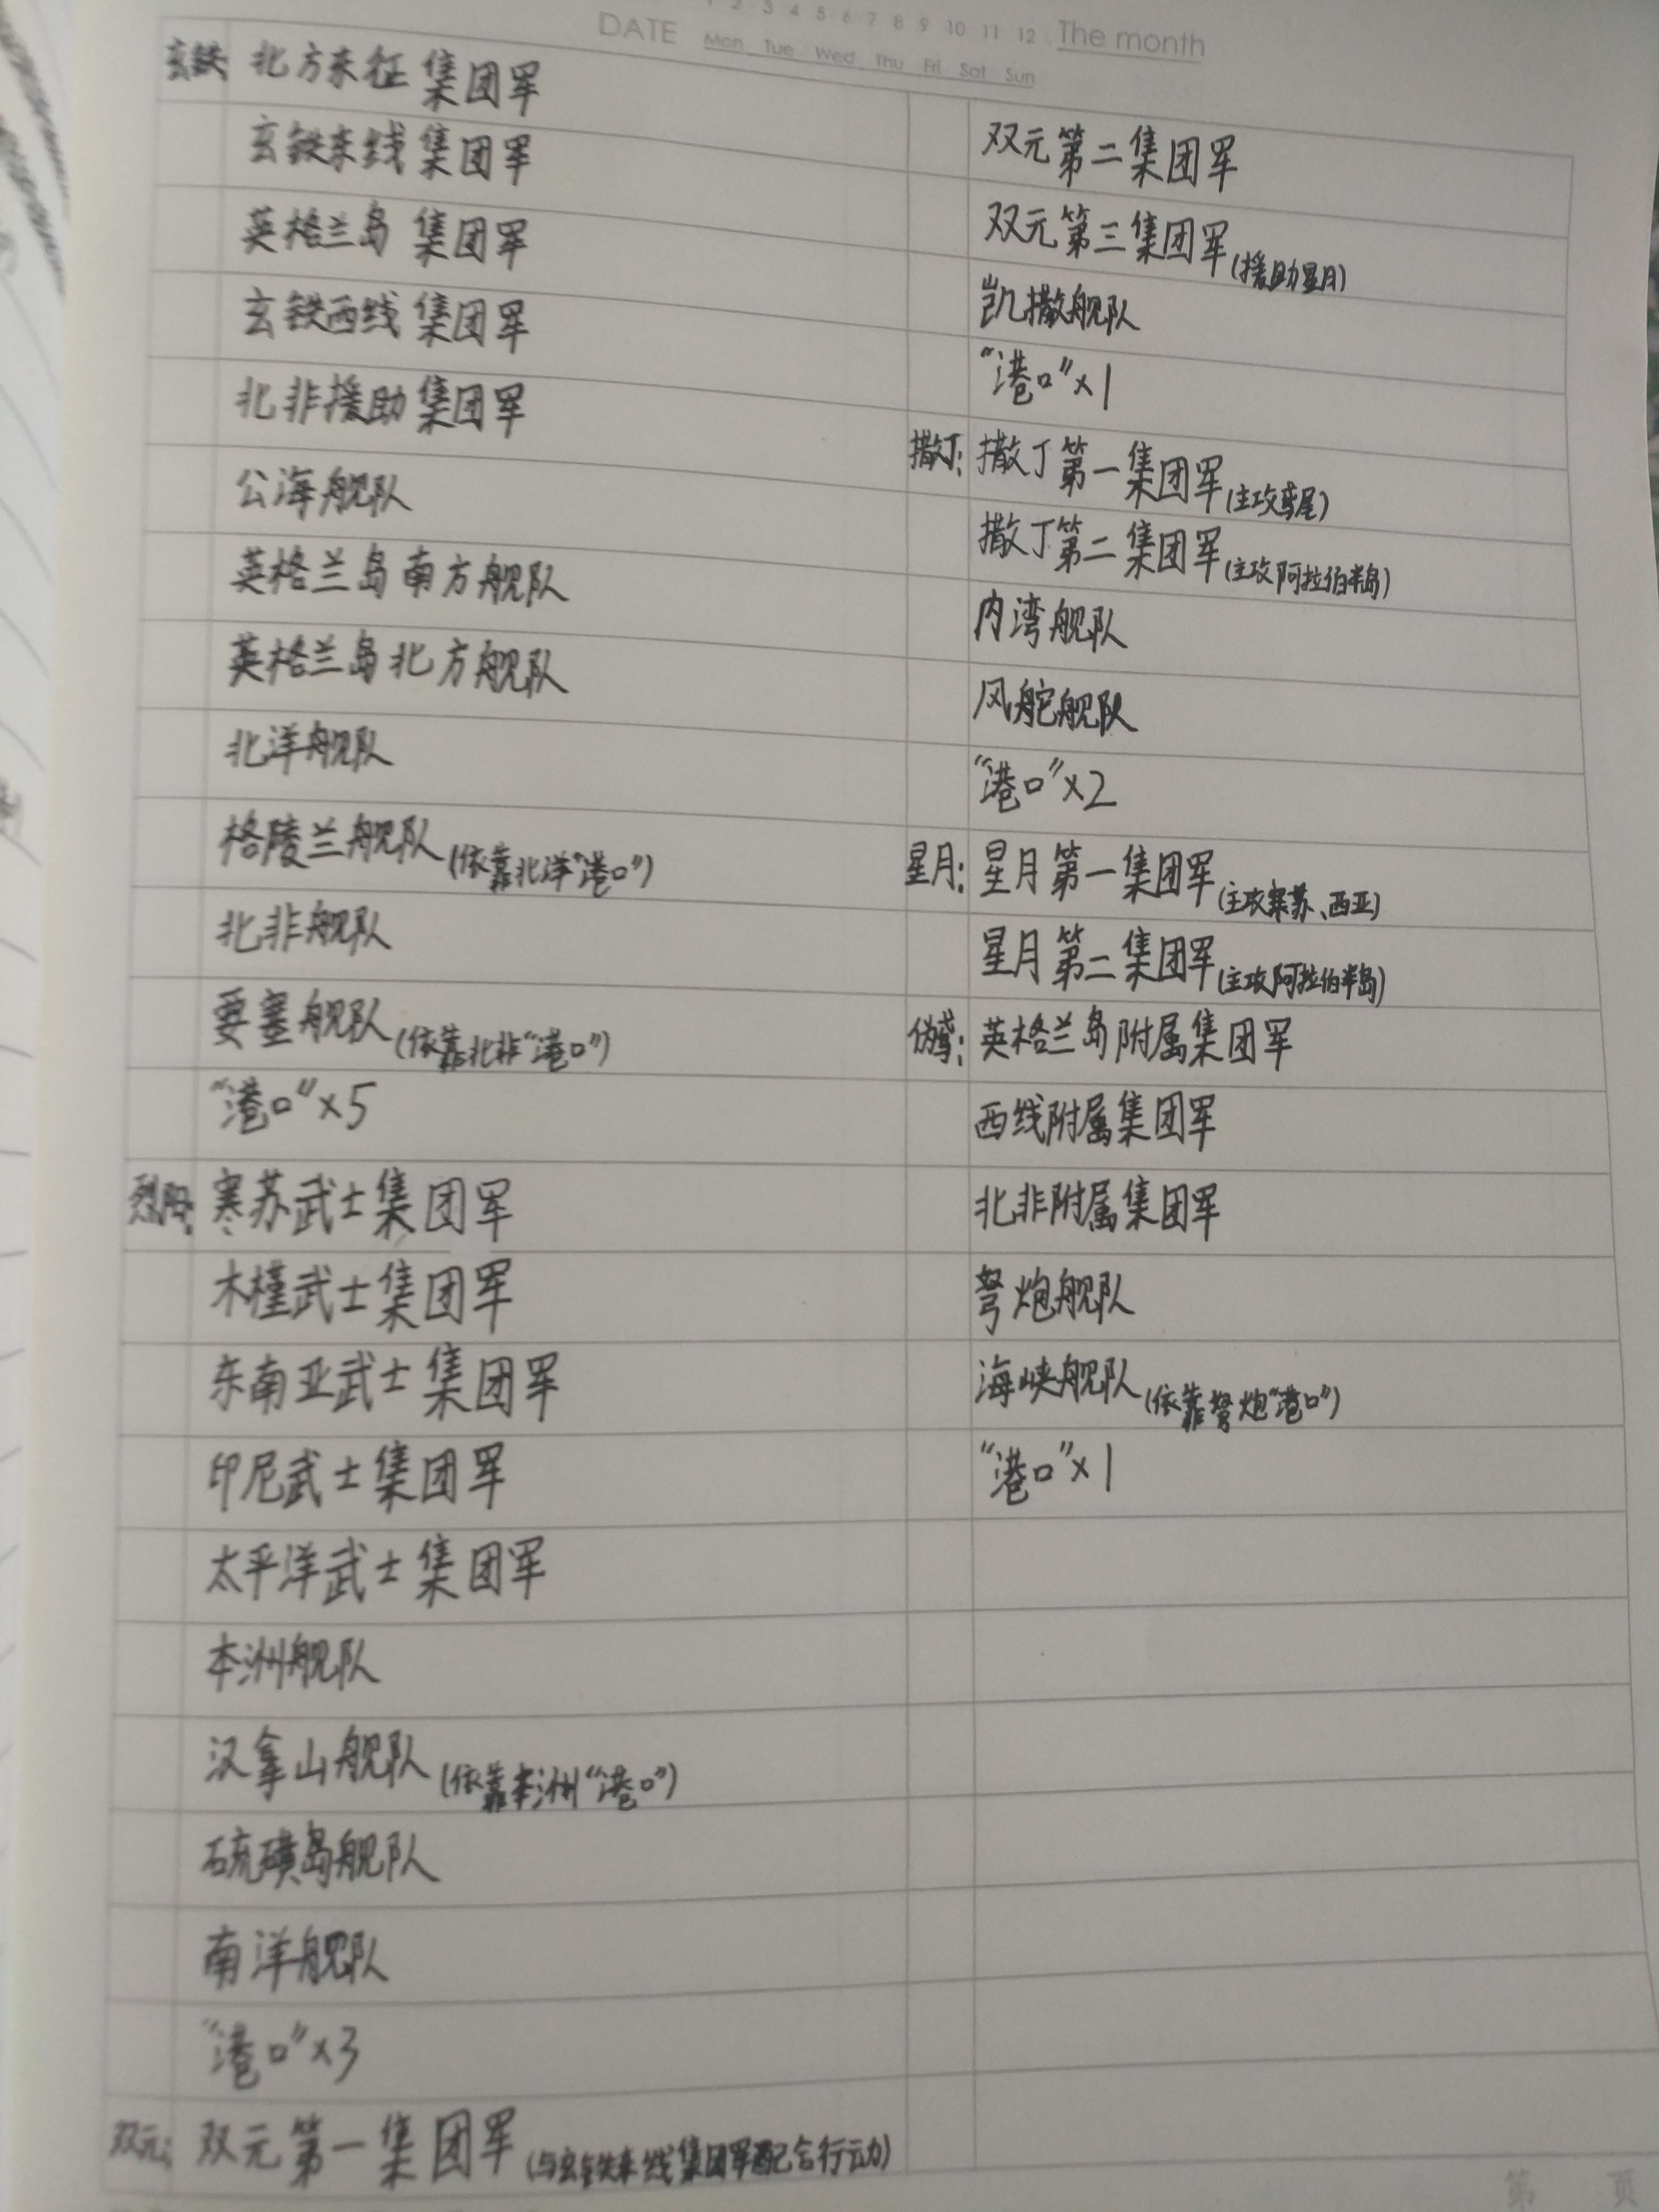 1 2 3 4 5 6 7 8 9 10 11 12 The month
DATE Mon Tue Wed Thu Fri Sat Sun
玄铁: 北方东征集团军
玄铁东线集团军
英格兰岛集团军
玄铁西线集团军
北非援助集团军
公海舰队
英格兰岛南方舰队
英格兰岛北方舰队
北洋舰队
格陵兰舰队(依靠北洋"港口")
北非舰队
要塞舰队(依靠北非"港口")
"港口"×5
烈阳: 寒苏武士集团军
木槿武士集团军
东南亚武士集团军
印尼武士集团军
太平洋武士集团军
本洲舰队
汉拿山舰队(依靠本洲"港口")
硫磺岛舰队
南洋舰队
"港口"×3
双元: 双元第一集团军(与玄铁东线集团军配合行动)
双元第二集团军
双元第三集团军(援助星月)
凯撒舰队
"港口"×1
撒丁: 撒丁第一集团军(主攻鸢尾)
撒丁第二集团军(主攻阿拉伯半岛)
内湾舰队
风舵舰队
"港口"×2
星月: 星月第一集团军(主攻寒苏、西亚)
星月第二集团军(主攻阿拉伯半岛)
伪鸢: 英格兰岛附属集团军
西线附属集团军
北非附属集团军
弩炮舰队
海峡舰队(依靠弩炮"港口")
"港口"×1
第 页